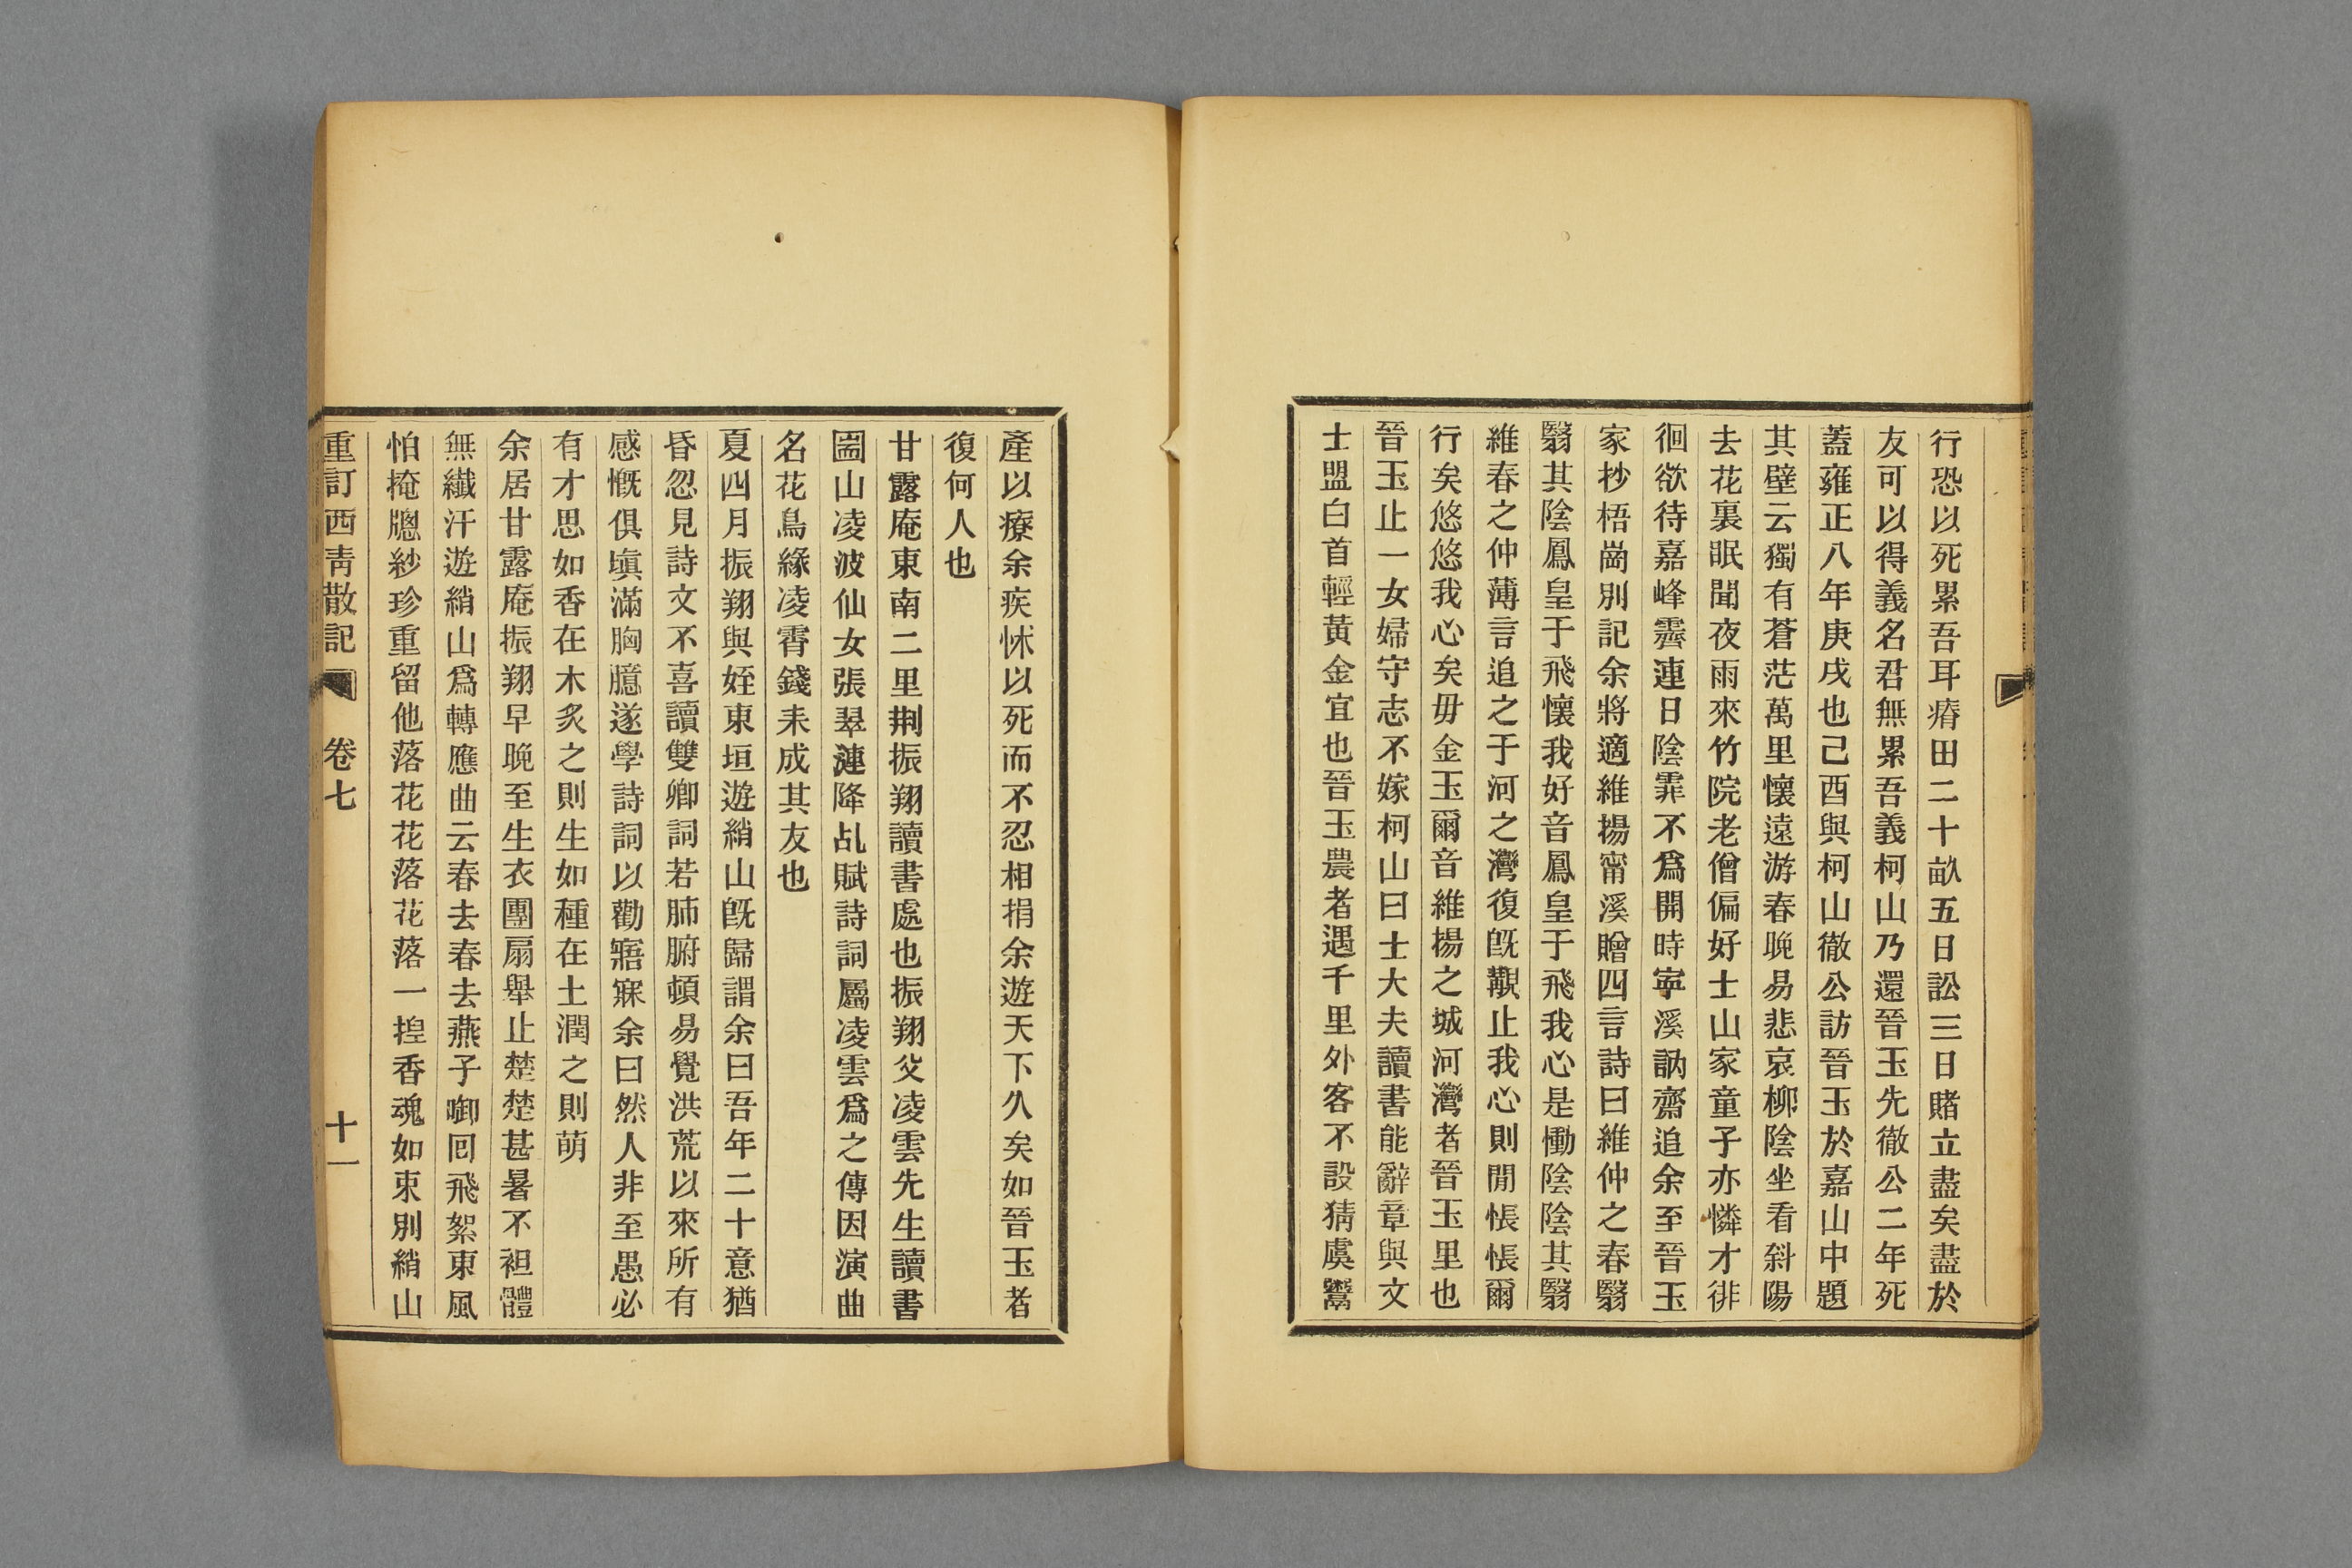 行恐以死累吾耳瘠田二十畝五日訟三日賭立盡矣盡於
友可以得義名君無累吾義柯山乃還晉玉先徹公二年死
蓋雍正八年庚戌也己酉與柯山徹公訪晉玉於嘉山中題
其壁云獨有蒼茫萬里懷遠游春晚易悲哀柳陰坐看斜陽
去花裏眠聞夜雨來竹院老僧偏好士山家童子亦憐才徘
徊欲待嘉峰霽連日陰霏不爲開時寧溪訥齋追余至晉玉
家抄梧崗別記余將適維揚甯溪贈四言詩曰維仲之春翳
翳其陰鳳皇于飛懷我好音鳳皇于飛我心是慟陰陰其翳
維春之仲薄言追之于河之灣復旣覯止我心則閒悵悵爾
行矣悠悠我心矣毋金玉爾音維揚之城河灣者晉玉里也
晉玉止一女婦守志不嫁柯山曰士大夫讀書能辭章與文
士盟白首輕黃金宜也晉玉農者遇千里外客不設猜虞鬻
產以療余疾怵以死而不忍相捐余遊天下久矣如晉玉者
復何人也
甘露庵東南二里荆振翔讀書處也振翔父凌雲先生讀書
圌山凌波仙女張翠漣降乩賦詩詞屬凌雲爲之傳因演曲
名花鳥緣凌霄錢耒成其友也
夏四月振翔與姪東垣遊綃山旣歸謂余曰吾年二十意猶
昏忽見詩文不喜讀雙卿詞若肺腑頓易覺洪荒以來所有
感慨俱塡滿胸臆遂學詩詞以勸寤寐余曰然人非至愚必
有才思如香在木炙之則生如種在土潤之則萌
余居甘露庵振翔早晚至生衣團扇舉止楚楚甚暑不袒體
無纖汗遊綃山爲轉應曲云春去春去燕子啣囘飛絮東風
怕掩牕紗珍重留他落花花落花落一揘香魂如束別綃山
重訂西靑散記 卷七 十一